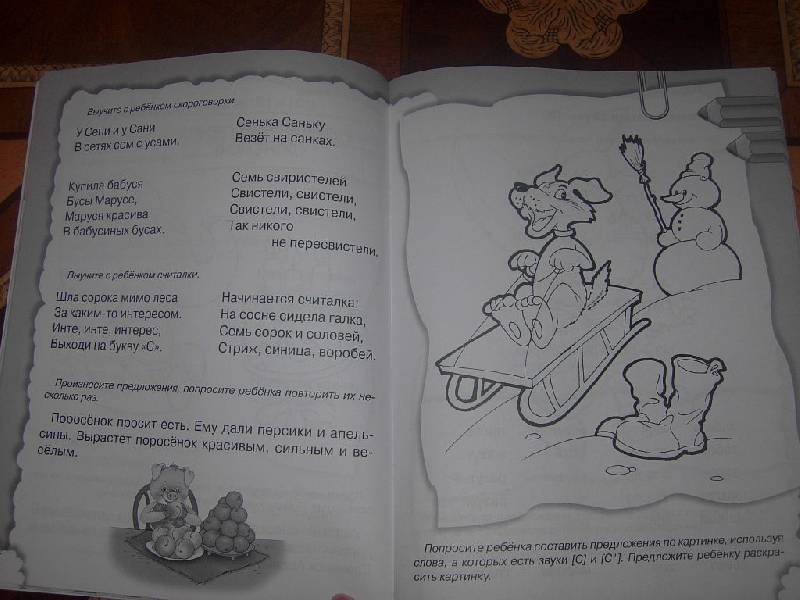 Выучите с ребёнком скороговорки.
У Сени и у Сани
В сетях сом с усами.
Сенька Саньку
Везёт на санках.
Купила бабуся
Бусы Марусе,
Маруся красива
В бабусиных бусах.
Семь свиристелей
Свистели, свистели,
Свистели, свистели,
Так никого
не пересвистели.
Выучите с ребёнком считалки.
Шла сорока мимо леса
За каким-то интересом.
Инте, инте, интерес,
Выходи на букву «С».
Начинается считалка:
На сосне сидела галка,
Семь сорок и соловей,
Стриж, синица, воробей.
Произносите предложения, попросите ребёнка повторить их не-
сколько раз.
Поросёнок просит есть. Ему дали персики и апель-
сины. Вырастет поросёнок красивым, сильным и ве-
сёлым.
Попросите ребёнка составить предложения по картинке, используя
слова, в которых есть звуки [С] и [С']. Предложите ребёнку раскра-
сить картинку.